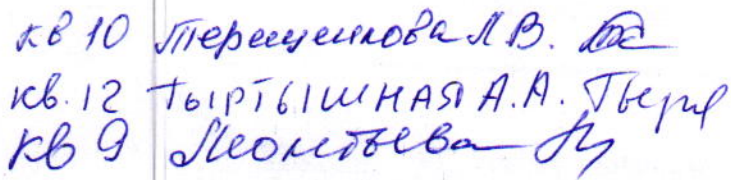 кв 10 Терещенкова Л.В.
кв. 12 Тыртышная А.А. Тыр
кв 9 Леонтьева